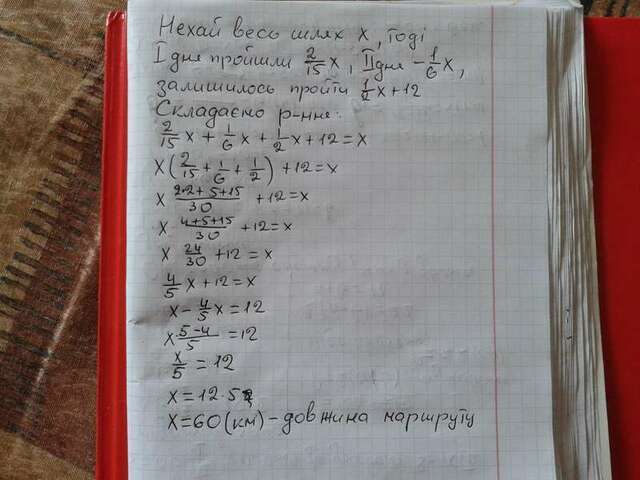 Нехай весь шлях x, тоді
I дня пройшли 2/15 x, II дня – 1/6 x,
залишилось пройти 1/2 x + 12
Складаємо р-ння:
2/15 x + 1/6 x + 1/2 x + 12 = x
x (2/15 + 1/6 + 1/2) + 12 = x
x (2·2 + 5 + 15)/30 + 12 = x
x (4+5+15)/30 + 12 = x
x 24/30 + 12 = x
4/5 x + 12 = x
x – 4/5 x = 12
x (5–4)/5 = 12
x/5 = 12
x = 12 · 5
x = 60 (км) – довжина маршруту